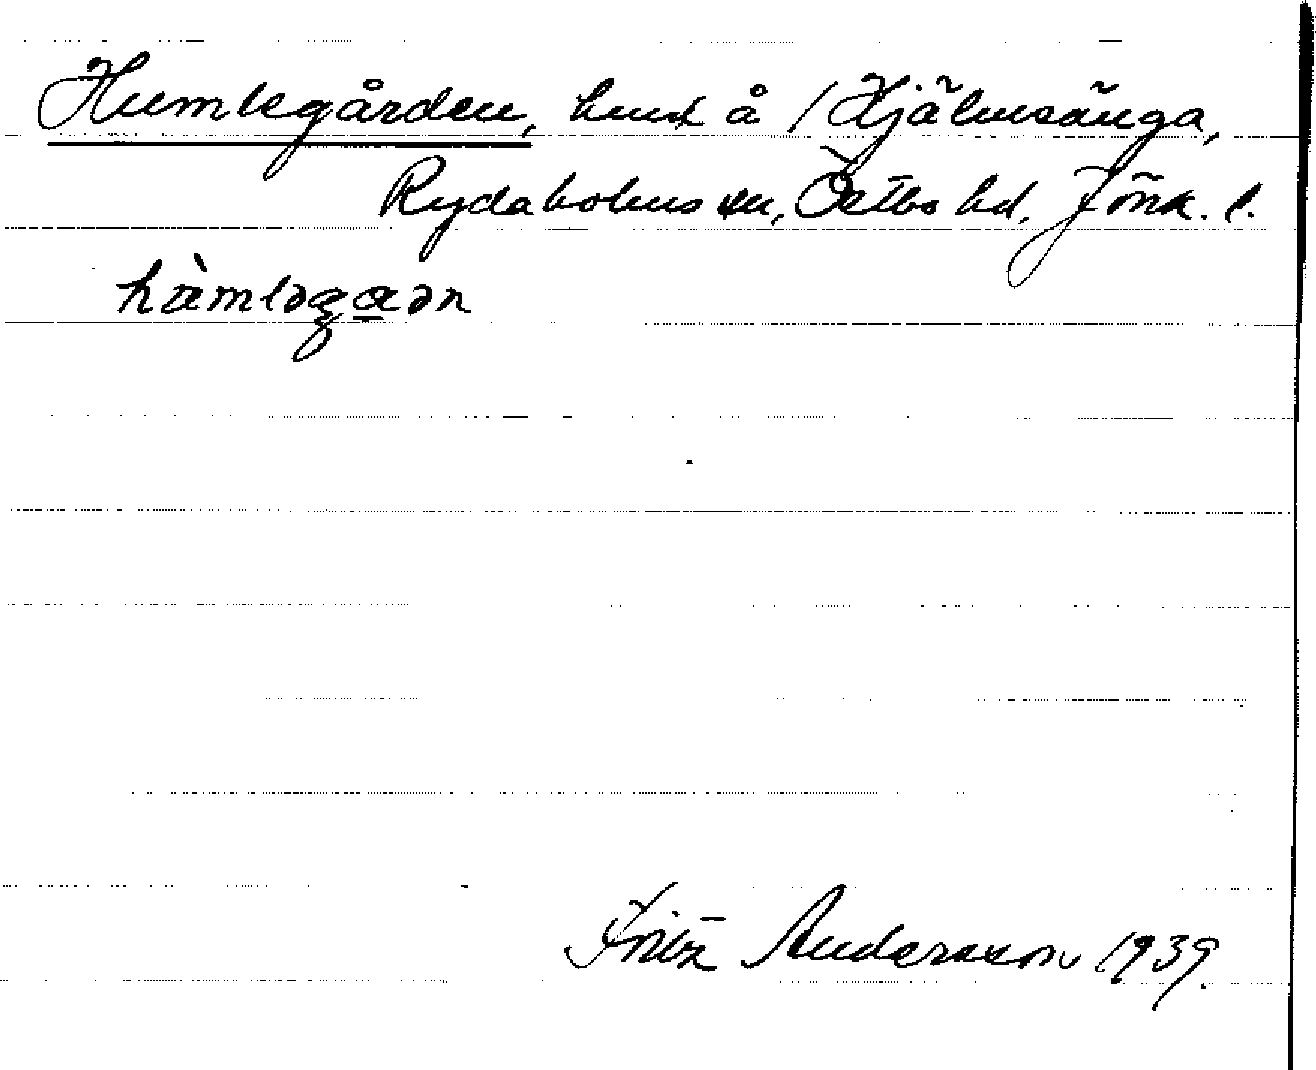 Humlegården, hmd å /Hjälmsänga,
Rydaholms sn, Östbo hd, Jönk. l.
hàmləgaən
Fritz Andersson 1939.